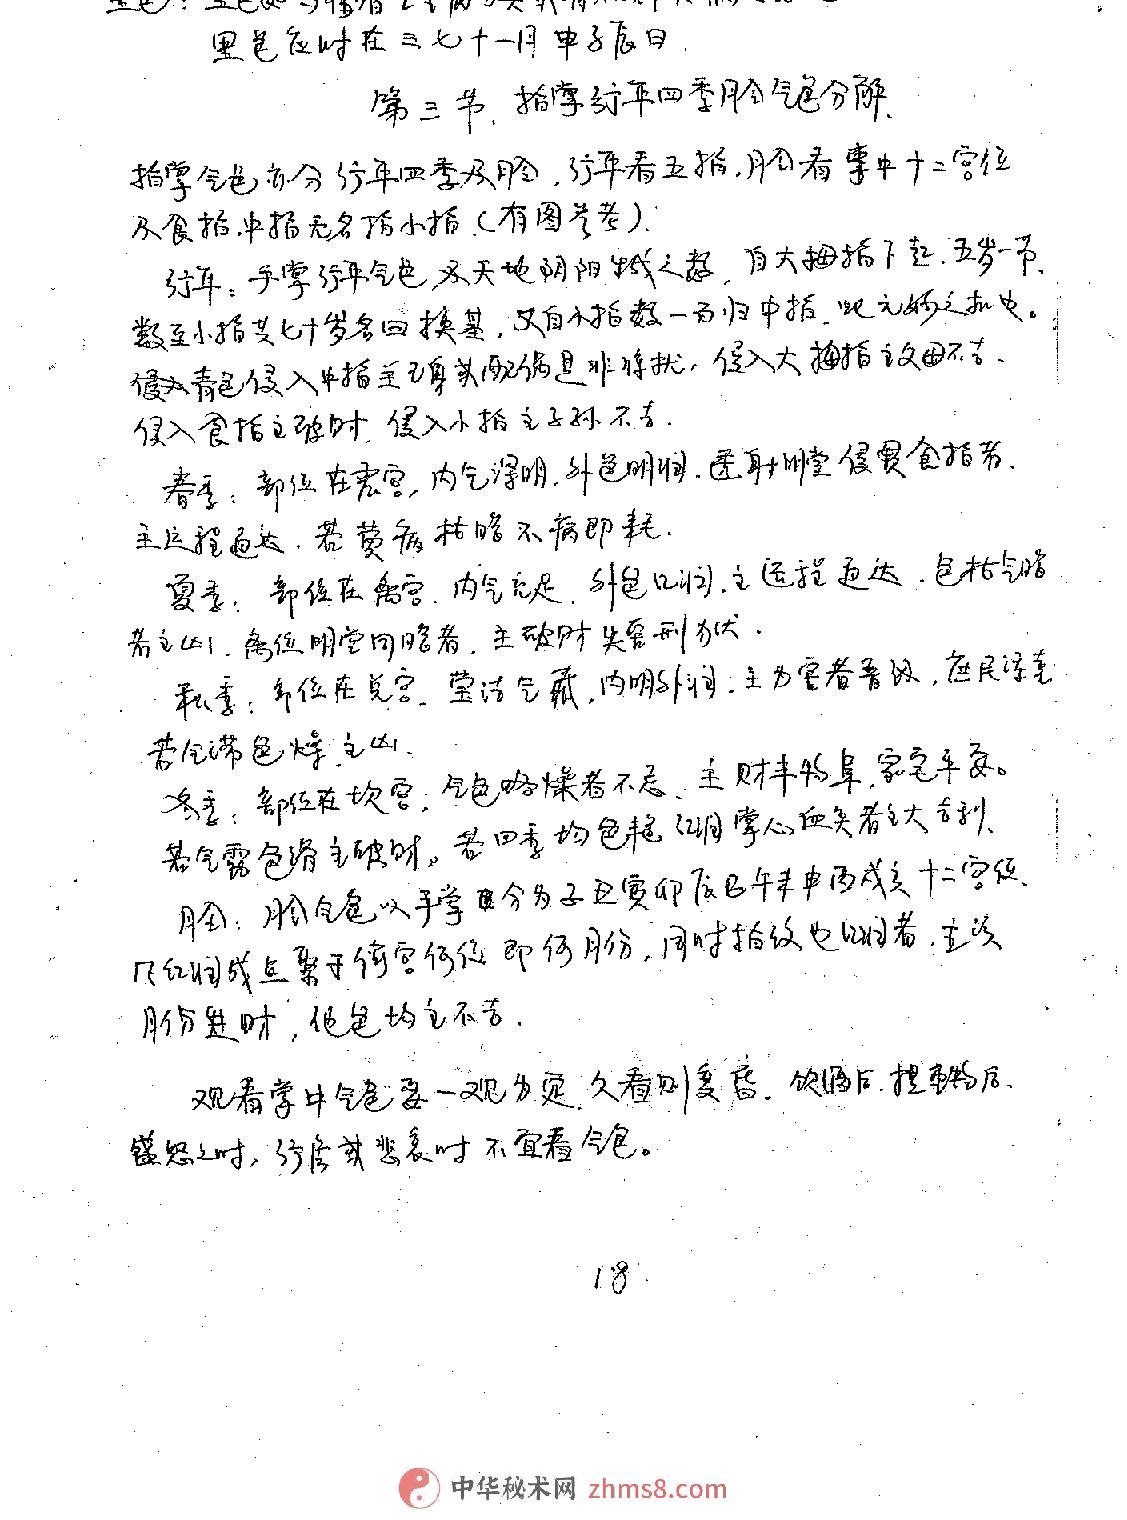 黑色应时在三七十一月申子辰日
第三节、指掌行年四季月令气色分解、
指掌气色亦分行年四季及月令、行年看五指、月令看掌中十二宫位
及食指、中指无名指小指（有图参考）。
行年：手掌行年气色 天地阴阳生成之数、自大拇指下起、五岁一节、
数至小指共七十岁 换基、又自小指数一 归中指、此元 之机也。
青色侵入中指主己身或配偶是非 扰，侵入大拇指主父母不吉、
侵入食指主破财、侵入小指主子孙不吉.
春季：部位在震宫，内气浮明、外色明润、 明堂侵贯食指者、
主运程通达、若黄 枯暗不病即耗.
夏季：部位在离宫、内气充足、外色红润、主运程通达、色枯气暗
者主凶、离位明堂同暗者、主破财失 刑 .
秋季：部位在兑宫、莹洁气藏、内明外润、主为官者晋级，庶民
若气滞色燥主凶.
冬季：部位在坎宫，气色略燥者不忌、主财丰物阜，家宅平安。
若气 色滑主破财。若四季均色艳红润掌心 者主大吉利、
月令：月令气色以手掌 分为子丑寅卯辰巳午未申酉戌亥十二宫位、
凡红润成点聚于何宫何位即何月份，同时指纹也红润者、主该
月份进财，他色均主不吉.
观看掌中气色要一观为定、久看则变昏、饮酒后、提重物后、
盛怒之时，行房或悲哀时不宜看气色。
18
中华秘术网 zhms8.com